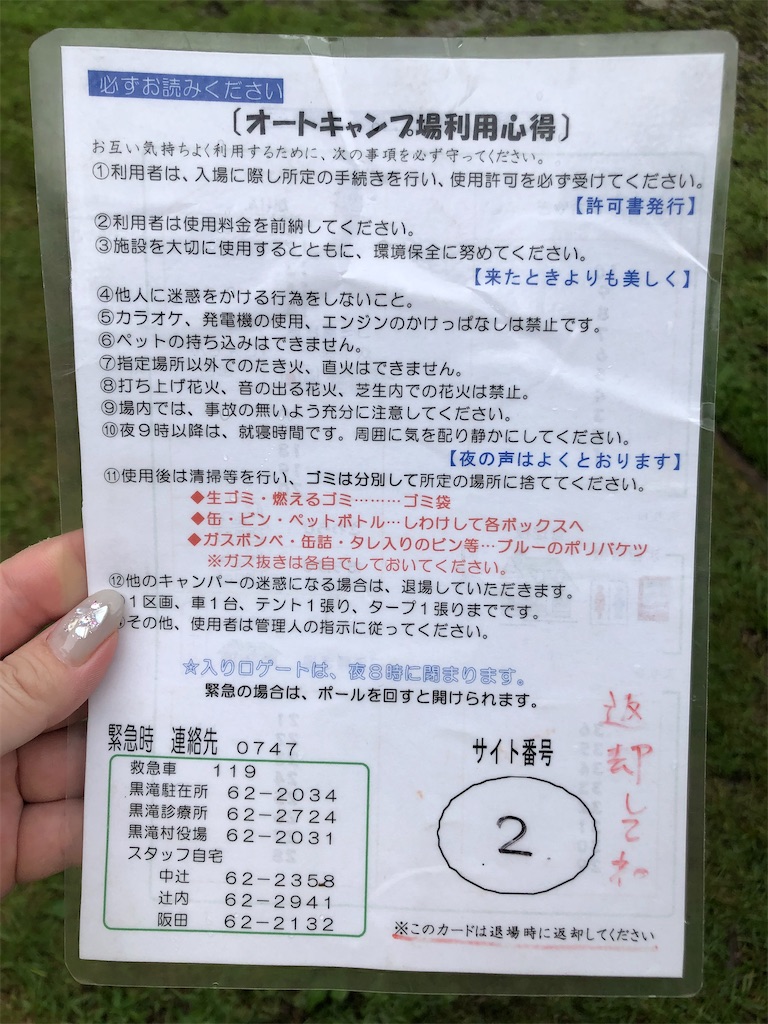 必ずお読みください
〔オートキャンプ場利用心得〕
お互い気持ちよく利用するために、次の事項を必ず守ってください。
①利用者は、入場に際し所定の手続きを行い、使用許可を必ず受けてください。
【許可書発行】
②利用者は使用料金を前納してください。
③施設を大切に使用するとともに、環境保全に努めてください。
【来たときよりも美しく】
④他人に迷惑をかける行為をしないこと。
⑤カラオケ、発電機の使用、エンジンのかけっぱなしは禁止です。
⑥ペットの持ち込みはできません。
⑦指定場所以外でのたき火、直火はできません。
⑧打ち上げ花火、音の出る花火、芝生内での花火は禁止。
⑨場内では、事故の無いよう充分に注意してください。
⑩夜９時以降は、就寝時間です。周囲に気を配り静かにしてください。
【夜の声はよくとおります】
⑪使用後は清掃等を行い、ゴミは分別して所定の場所に捨ててください。
◆生ゴミ・燃えるゴミ………ゴミ袋
◆缶・ビン・ペットボトル…しわけして各ボックスへ
◆ガスボンベ・缶詰・タレ入りのビン等…ブルーのポリバケツ
※ガス抜きは各自でしておいてください。
⑫他のキャンパーの迷惑になる場合は、退場していただきます。
１区画、車１台、テント１張り、タープ１張りまでです。
その他、使用者は管理人の指示に従ってください。
☆入り口ゲートは、夜８時に閉まります。
緊急の場合は、ポールを回すと開けられます。
緊急時　連絡先　０７４７
救急車　１１９
黒滝駐在所　６２－２０３４
黒滝診療所　６２－２７２４
黒滝村役場　６２－２０３１
スタッフ自宅
中辻　６２－２３５８
辻内　６２－２９４１
阪田　６２－２１３２
サイト番号
2
返却してね
※このカードは退場時に返却してください